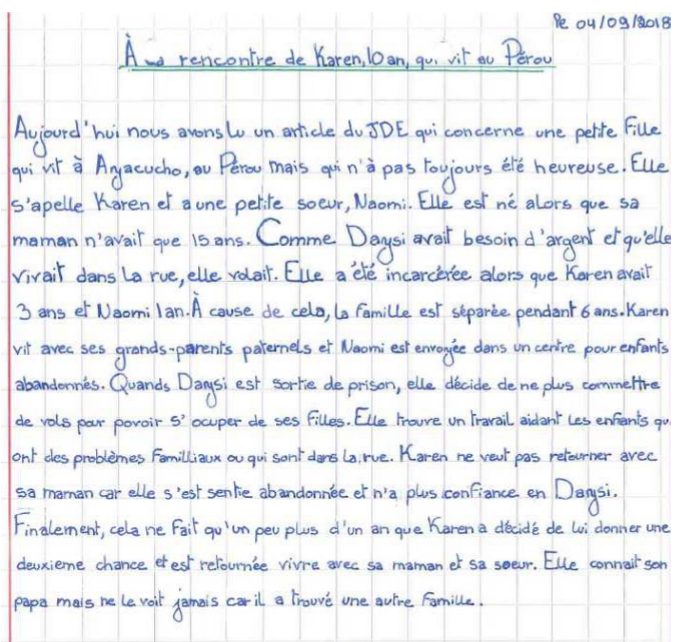 Le 04/09/2018
À la rencontre de Karen, 10 an, qui vit au Pérou
Aujourd'hui nous avons lu un article du JDE qui concerne une petite fille
qui vit à Anyacucho, au Pérou mais qui n'à pas toujours été heureuse. Elle
s'apelle Karen et a une petite soeur, Naomi. Elle est né alors que sa
maman n'avait que 15 ans. Comme Daysi avait besoin d'argent et qu'elle
vivait dans la rue, elle volait. Elle a été incarcérée alors que Karen avait
3 ans et Naomi 1 an. À cause de cela, la famille est séparée pendant 6 ans. Karen
vit avec ses grands-parents paternels et Naomi est envoyée dans un centre pour enfants
abandonnés. Quands Daysi est sortie de prison, elle décide de ne plus commettre
de vols pour povoir s'ocuper de ses filles. Elle trouve un travail aidant les enfants qu
ont des problèmes familliaux ou qui sont dans la rue. Karen ne veut pas retourner avec
sa maman car elle s'est sentie abandonnée et n'a plus confiance en Daysi.
Finalement, cela ne fait qu'un peu plus d'un an que Karen a décidé de lui donner une
deuxieme chance et est retournée vivre avec sa maman et sa soeur. Elle connait son
papa mais ne le voit jamais car il a trouvé une autre famille.